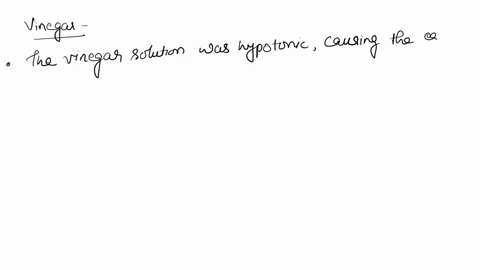 Vinegar -
• The vinegar solution was hypotonic, causing the